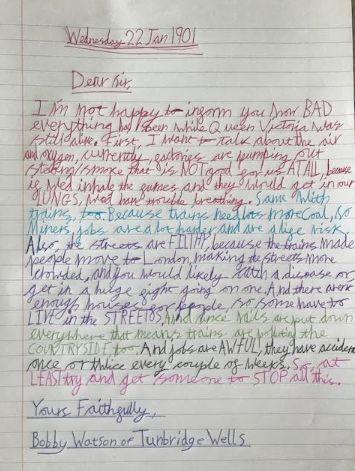 Wednesday 22 Jan 1901
Dear Sir,
I'm not happy to inform you how BAD
everything has been while Queen Victoria was
still alive. First, I want to talk about the air
and oxygen, currently, factories are pumping out
steam/smoke that is NOT good for us AT ALL, because
is we'd inhale the fumes and they would get in our
LUNGS, we'd have trouble breathing. Same with
trains, too. Because trains need lots more coal, so
Miners, jobs are a lot harder and are a huge risk.
Also, the streets are FILTHY, because the trains made
people move to London, making the streets more
crowded, and you would likely catch a disease or
get in a huge fight going on one. And there aren't
enough houses for people, so some have to
LIVE in the STREETS, And since rails are put down
everywhere that means trains are polluting the
COUNTRYSIDE, too. And jobs are AWFUL, they have accidents
once or twice every couple of weeks. So, at
LEAST try and get someone to STOP all this.
Yours Faithfully,
Bobby Watson of Tunbridge Wells